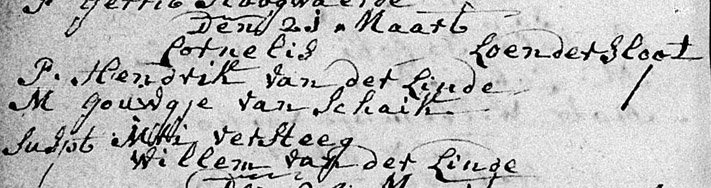 P Gerrit Hoogwaerde
Den 21 Maart
Cornelis Loendersloot
P. Hendrik van der Linde
M Gouwgje van Schaik
Suspt Mtti versteeg
Willem van der Linge